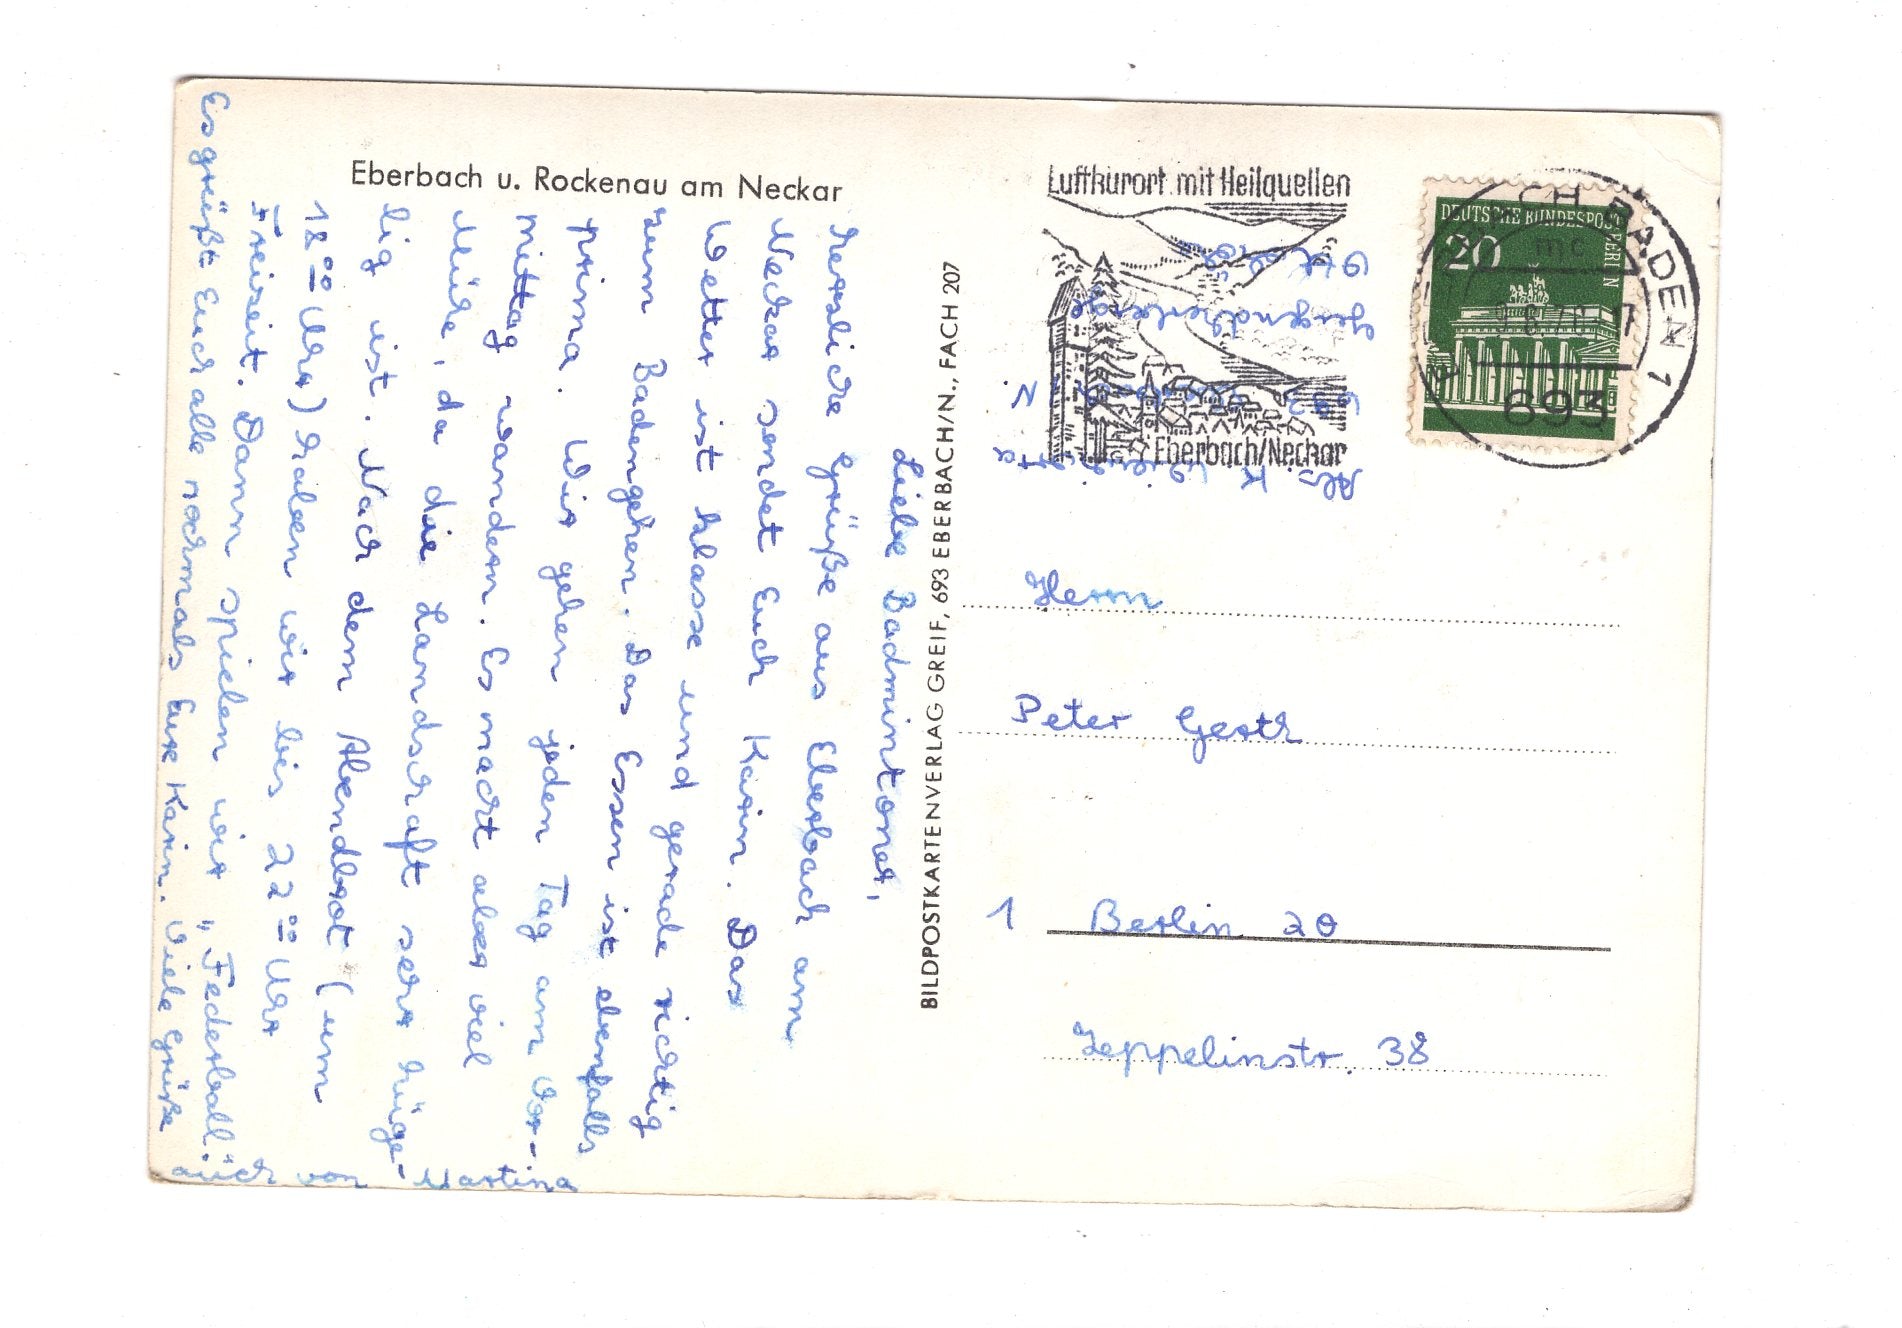 Eberbach u. Rockenau am Neckar
Liebe Badmintoner,
herzliche Grüße aus Eberbach am
Neckar sendet Euch Karin. Das
Wetter ist klasse und gerade richtig
zum Badengehen. Das Essen ist ebenfalls
prima. Wir gehen jeden Tag am Vor-
mittag wandern. Es macht aber viel
Mühe, da die Landschaft sehr hüge-
lig ist. Nach dem Abendbrot (um
18⁰⁰ Uhr) haben wir bis 22⁰⁰ Uhr
Freizeit. Dann spielen wir "Federball".
Es grüßt Euch alle nochmals Eure Karin. Viele Grüße
auch von Martina
BILDPOSTKARTENVERLAG GREIF, 693 EBERBACH/N., FACH 207
Luftkurort mit Heilquellen
Eberbach/Neckar
Abs. K.
693 N.
Jugendherberge
DEUTSCHE BUNDESPOST BERLIN
20
CH, BADEN 1
mc
693
Herrn
Peter
1 Berlin 20
Zeppelinstr. 38